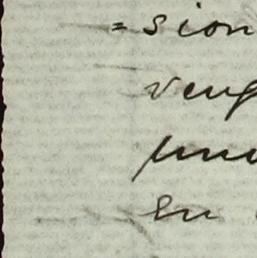 =sion
veng
pun
En